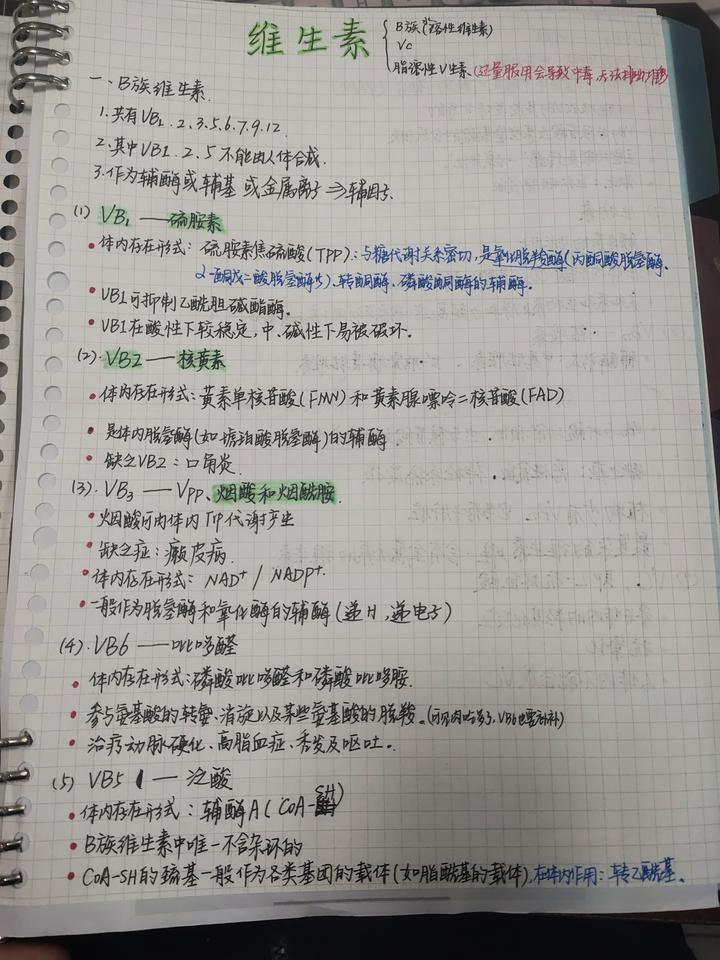 维生素
B族(水溶性维生素)
Vc
脂溶性V生素(过量服用会导致中毒,无法排出体外)
一、B族维生素.
1.共有VB1.2.3.5.6.7.9.12.
2.其中VB1.2.5不能由人体合成.
3.作为辅酶或辅基或金属离子⇒辅因子.
(1) VB1 ——硫胺素
•体内存在形式: 硫胺素焦硫酸(TPP):与糖代谢关系密切,是氧化脱羧酶(丙酮酸脱氢酶、
α-酮戊二酸脱氢酶等)、转酮酶、磷酸酮酶的辅酶.
•VB1可抑制乙酰胆碱酯酶。
•VB1在酸性下较稳定,中、碱性下易被破坏.
(2) VB2 —— 核黄素
•体内存在形式:黄素单核苷酸(FMN)和黄素腺嘌呤二核苷酸(FAD)
•是体内脱氢酶(如琥珀酸脱氢酶)的辅酶
•缺乏VB2:口角炎.
(3). VB3 —— VPP、烟酸和烟酰胺.
•烟酸可由体内Trp代谢产生
•缺乏症:癞皮病.
•体内存在形式: NAD⁺ / NADP⁺.
•一般作为脱氢酶和氧化酶的辅酶(递H,递电子)
(4). VB6 ——吡哆醛
•体内存在形式:磷酸吡哆醛和磷酸吡哆胺.
•参与氨基酸的转氨、消旋以及某些氨基酸的脱羧。(可见肉吃多了,VB6也要补补)
•治疗动脉硬化、高脂血症、秃发及呕吐。
(5) VB5 —— 泛酸
•体内存在形式:辅酶A(CoA-SH)
•B族维生素中唯一不含杂环的
•CoA-SH的巯基一般作为各类基团的载体(如脂酰基的载体).在体内作用:转乙酰基.